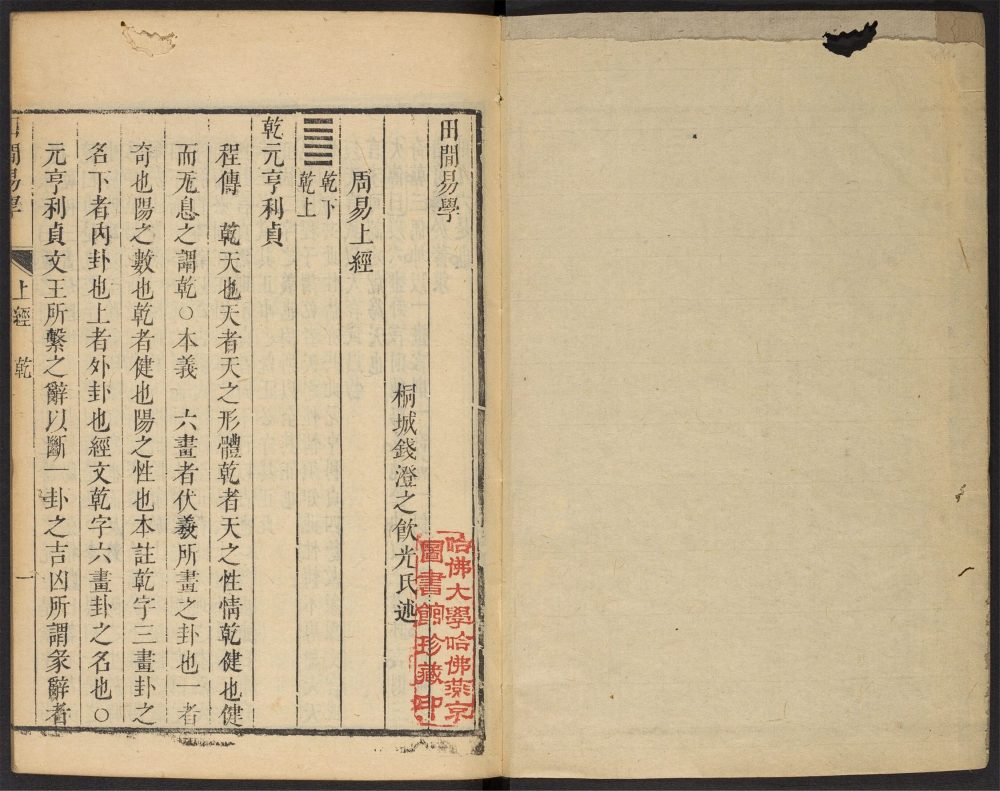 田間易學
桐城錢澄之飲光氏述
周易上經
乾下
乾上
乾元亨利貞
程傳 乾天也天者天之形體乾者天之性情乾健也健
而无息之謂乾○本義 六畫者伏羲所畫之卦也一者
奇也陽之數也乾者健也陽之性也本註乾字三畫卦之
名下者內卦也上者外卦也經文乾字六畫卦之名也○
元亨利貞文王所繫之辭以斷一卦之吉凶所謂彖辭者
田間易學 上經 乾 一
哈佛大學哈佛燕京
圖書館珍藏印